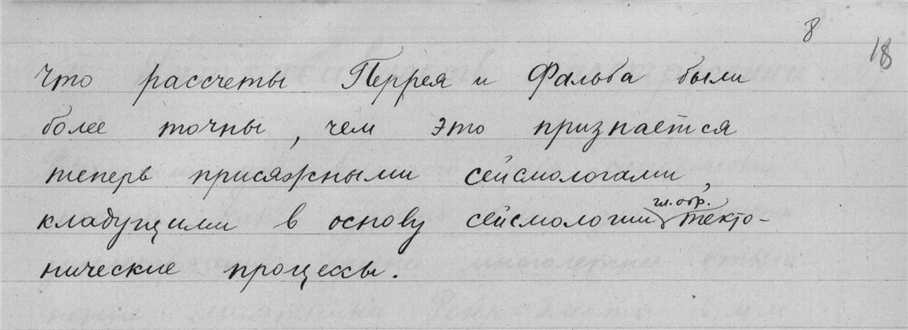 8
18
что рассчеты Перрея и Фальба были
более точны, чем это признается
теперь присяжными сейсмологами,
кладущими в основу сейсмологии гл. обр. текто-
нические процессы.